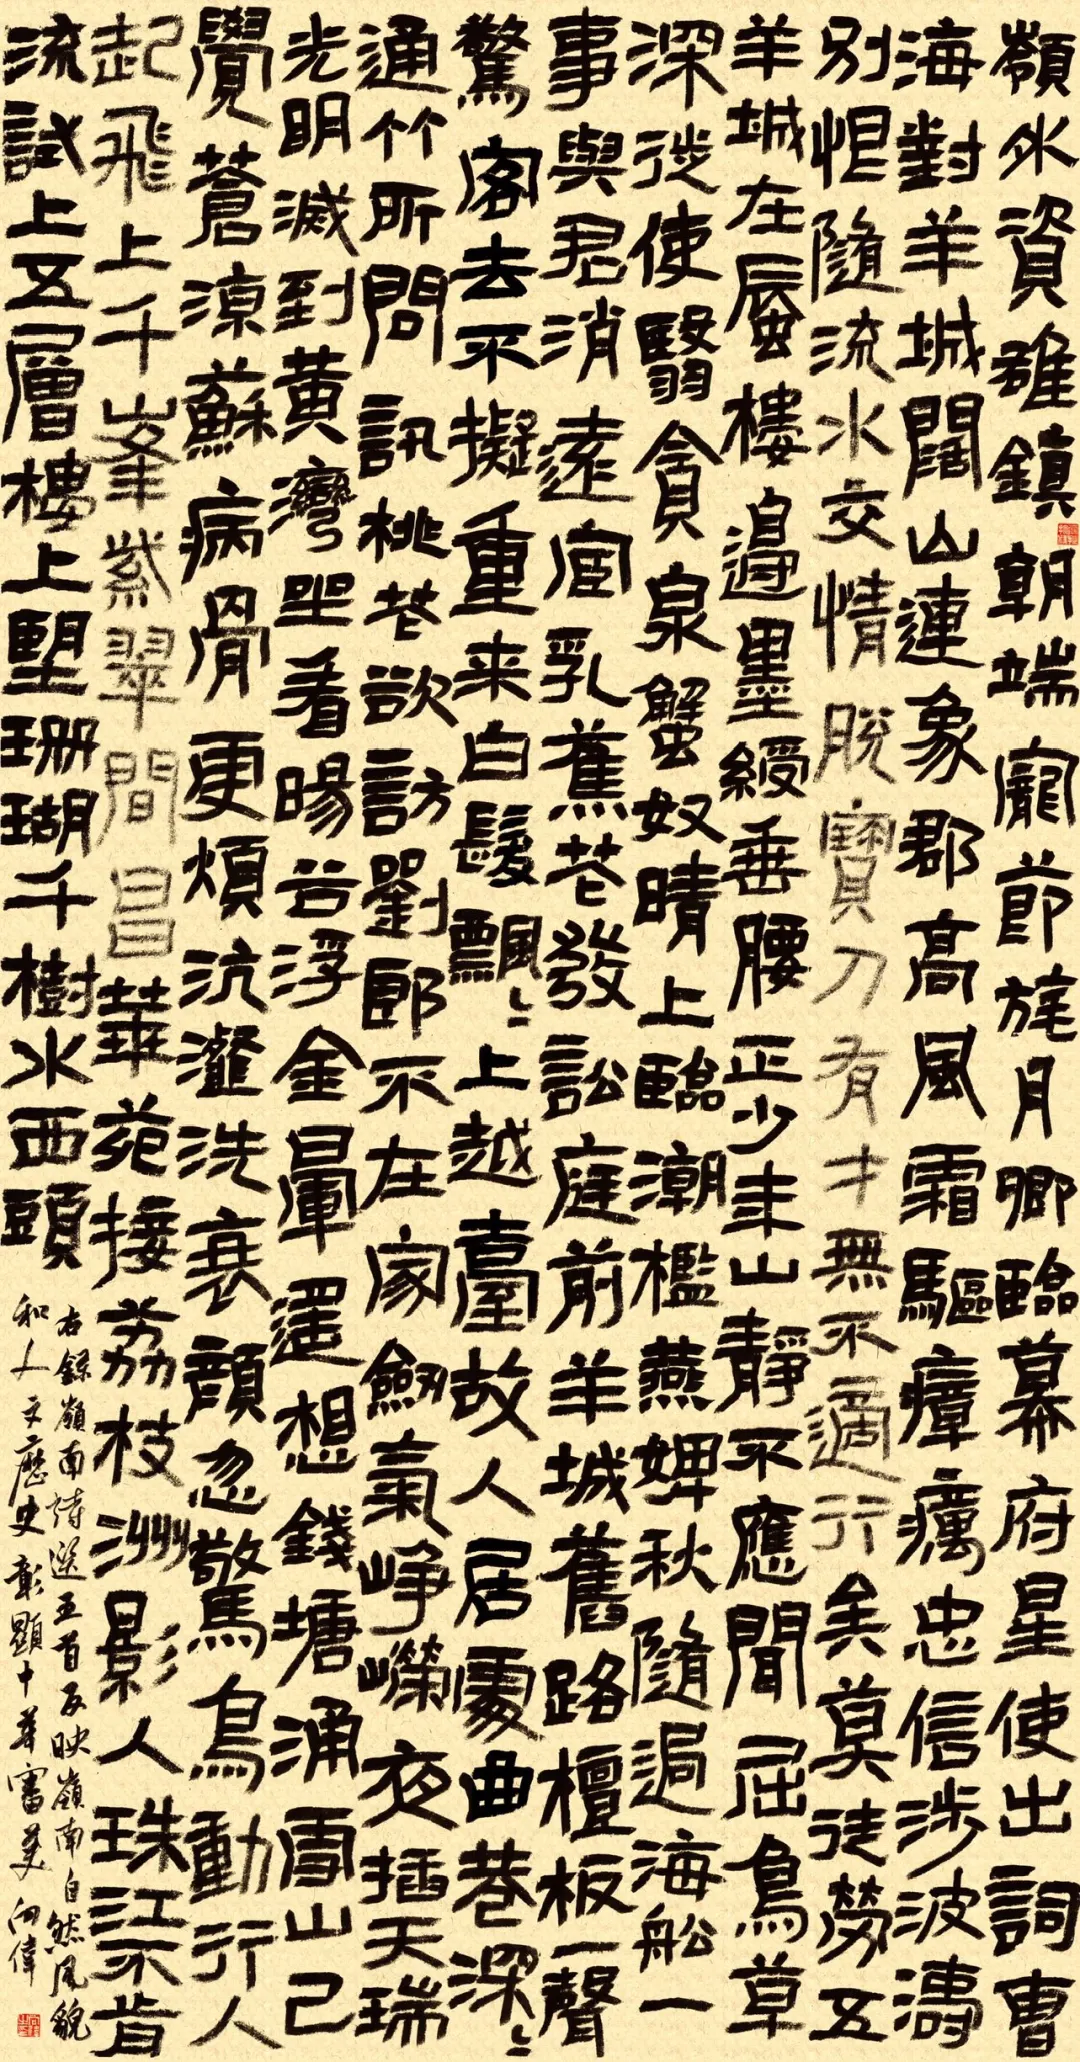 嶺外資雄鎮朝端寵節旄月卿臨幕府星使出詞曹
海對羊城闊山連象郡高風霜驅瘴癘忠信涉波濤
別恨隨流水交情脫寶刀有才無不適行矣莫徒勞五
羊城在蜃樓邊墨綬垂腰正少年山靜不應聞屈鳥草
深從使翳貪泉蟹奴晴上臨潮檻燕婢秋隨過海船一
事與君消遠宦乳蕉花發訟庭前羊城舊路檀板一聲
驚客去不擬重来白鬢飄〻上越臺故人居處曲巷深〻
通竹所問訊桃花欲訪劉郎不在家劍氣崢嶸夜插天瑞
光明滅到黃灣坐看暘谷浮金暈遥想錢塘涌雪山已
覺蒼涼蘇病骨更煩沆瀣洗衰顏忽驚鳥動行人
起飛上千峯紫翠間昌華苑接荔枝洲影人珠江不肯
流試上五層樓上望珊瑚千樹水西頭
右錄嶺南詩選五首反映嶺南自然風貌
和人文歷史彰顯中華審美 向偉